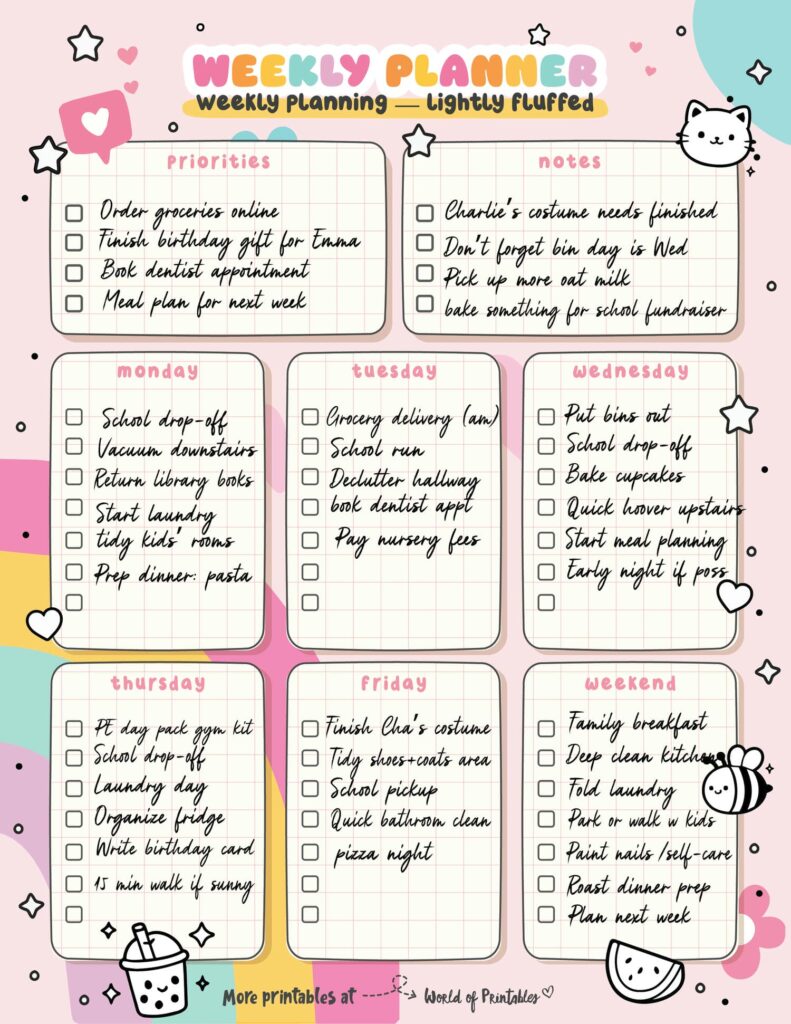 WEEKLY PLANNER
weekly planning — lightly fluffed
priorities
Order groceries online
Finish birthday gift for Emma
Book dentist appointment
Meal plan for next week
notes
Charlie's costume needs finished
Don't forget bin day is Wed
Pick up more oat milk
bake something for school fundraiser
monday
School drop-off
Vacuum downstairs
Return library books
Start laundry
tidy kids' rooms
Prep dinner: pasta
tuesday
Grocery delivery (am)
School run
Declutter hallway
book dentist appt
Pay nursery fees
wednesday
Put bins out
School drop-off
Bake cupcakes
Quick hoover upstairs
Start meal planning
Early night if poss
thursday
PE day pack gym kit
School drop-off
Laundry day
Organize fridge
Write birthday card
15 min walk if sunny
friday
Finish Cha's costume
Tidy shoes+coats area
School pickup
Quick bathroom clean
pizza night
weekend
Family breakfast
Deep clean kitchen
Fold laundry
Park or walk w kids
Paint nails /self-care
Roast dinner prep
Plan next week
More printables at World of Printables